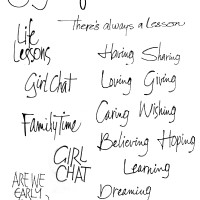 There's always a Lesson
Life
Lessons
Having Sharing
Girl Chat
Loving Giving
Caring Wishing
Family Time
Believing Hoping
GIRL
CHAT
Learning
ARE WE
EARLY
Dreaming